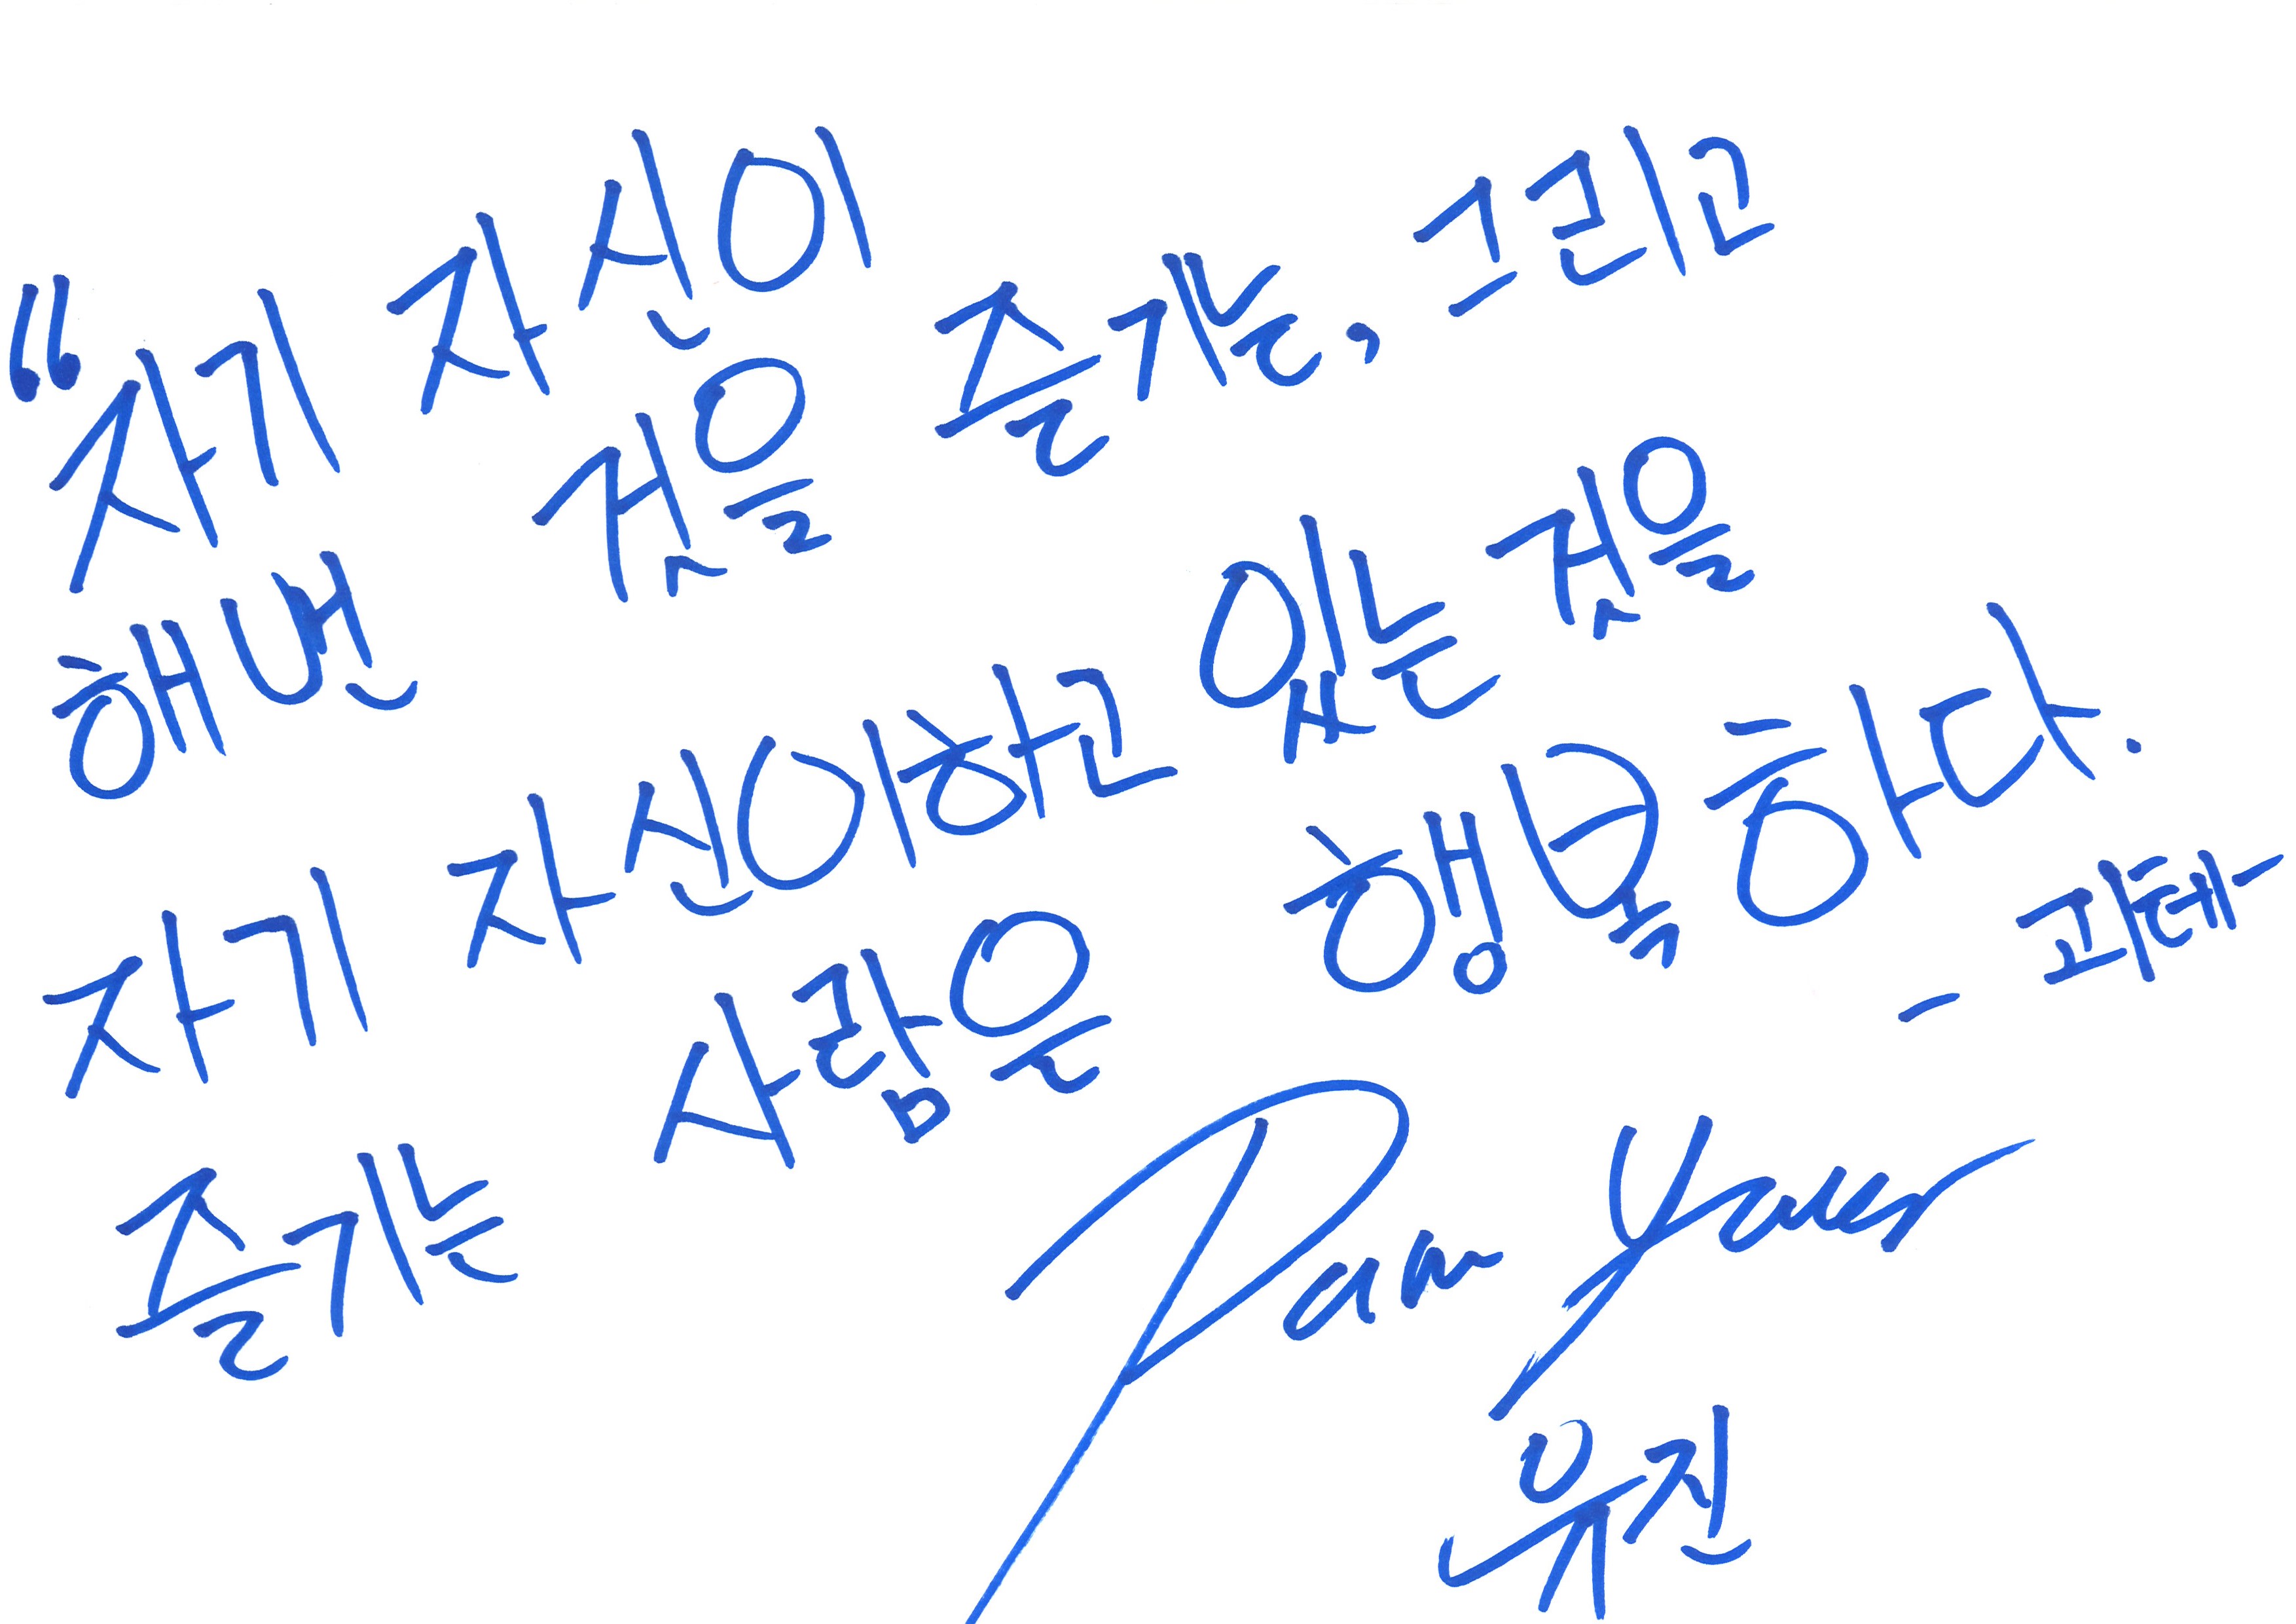 “자기 자신이
해번 것을 즐기는, 그리고
자기 자신이하고 있는 것을
즐기는 사람은 행복하다.
- 괴테 -
유진